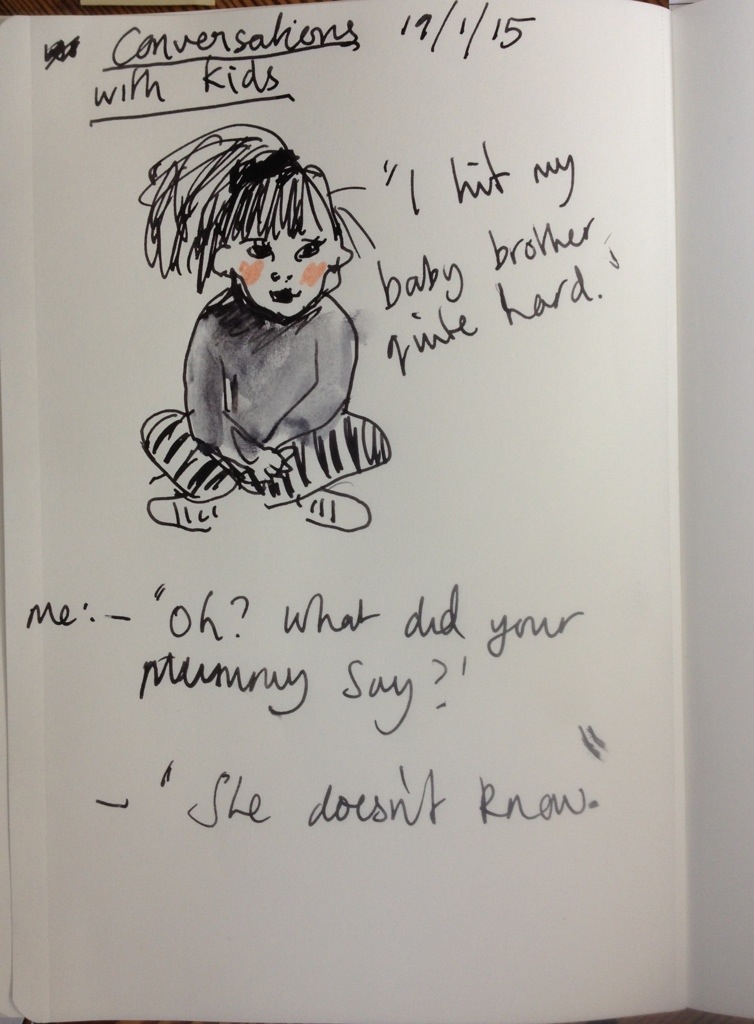 Conversations 19/1/15
with Kids
"I hit my
baby brother
quite hard."
me:- "Oh? What did your
Mummy Say?"
- "She doesn't know."